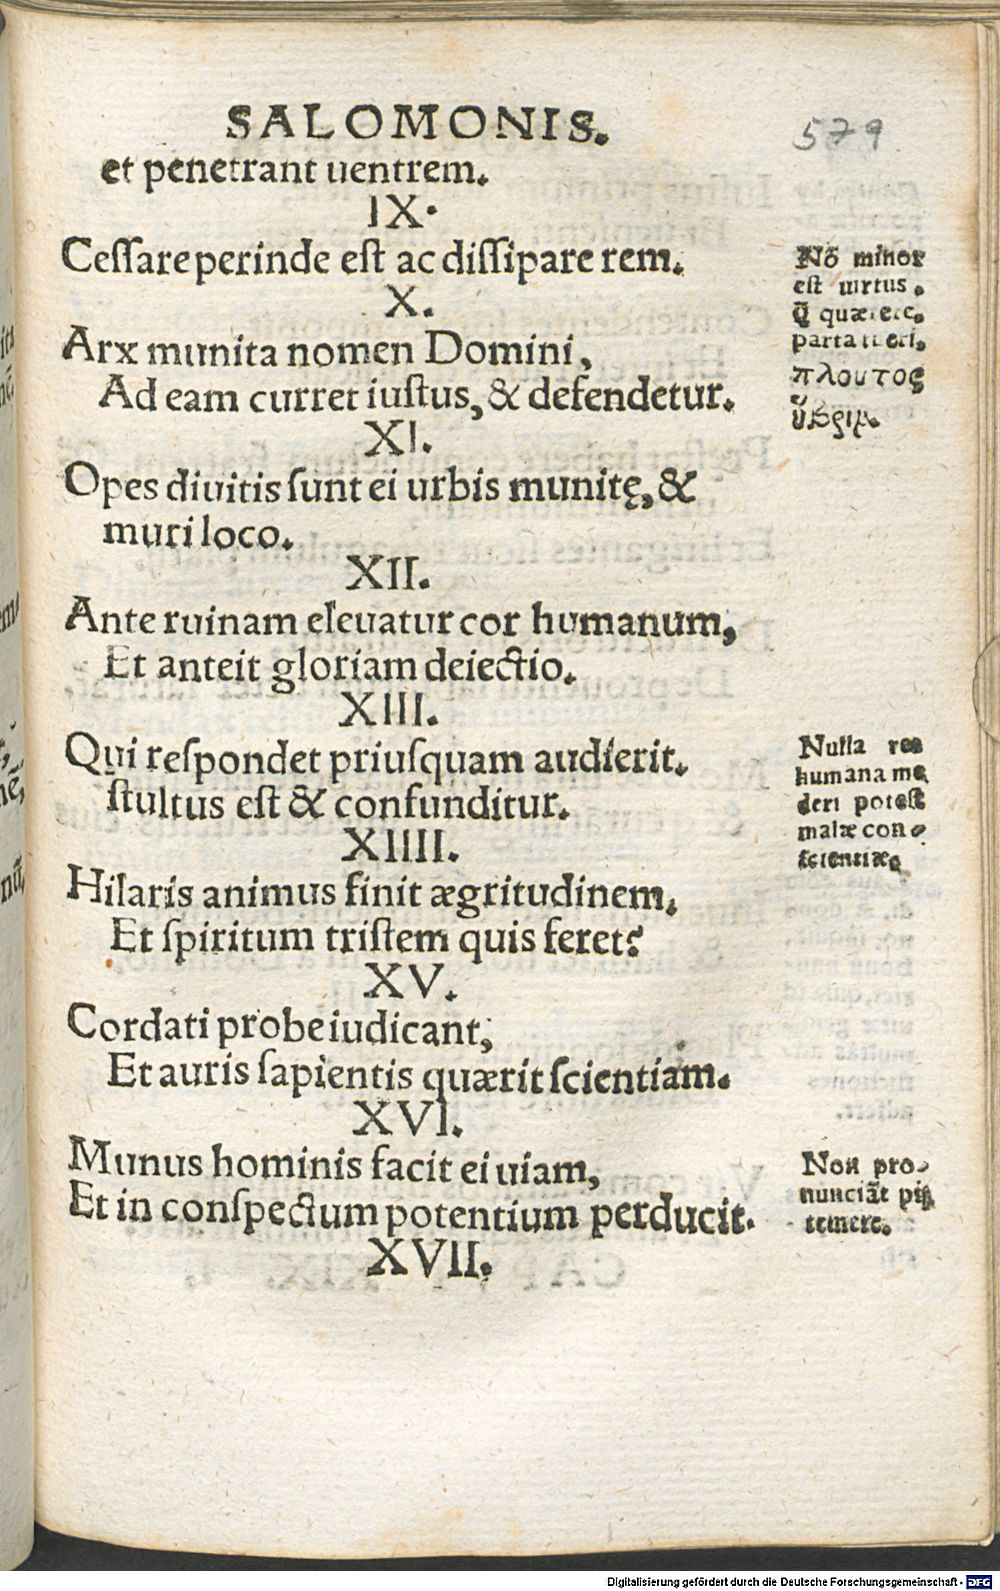 SALOMONIS.
579
et penetrant uentrem.
IX.
Ceſſare perinde eſt ac diſſipare rem.
X.
Arx munita nomen Domini,
Ad eam curret iuſtus, & defendetur.
XI.
Opes diuitis ſunt ei urbis munitę, &
muri loco.
XII.
Ante ruinam eleuatur cor humanum,
Et anteit gloriam deiectio.
XIII.
Qui reſpondet priuſquam audierit.
ſtultus eſt & confunditur.
XIIII.
Hilaris animus finit ægritudinem.
Et ſpiritum triſtem quis feret?
XV.
Cordati probe iudicant,
Et auris ſapientis quærit ſcientiam.
XVI.
Munus hominis facit ei uiam,
Et in conſpectum potentium perducit.
XVII.
Nõ minor
eſt uirtus.
quærere.
parta tueri.
πλουτος
Nulla res
humana me
deri poteſt
malæ con-
ſcientiæ.
Non pro-
nunciãt
temere.
Digitalisierung gefördert durch die Deutsche Forschungsgemeinschaft - DFG